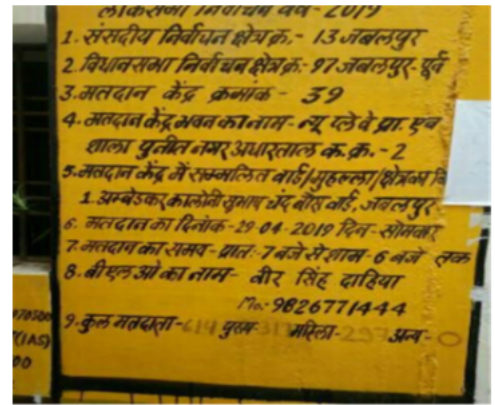 लोकसभा निर्वाचन वर्ष - 2019
1. संसदीय निर्वाचन क्षेत्र क्र.- 13 जबलपुर
2. विधानसभा निर्वाचन क्षेत्र क्र.- 97 जबलपुर-पूर्व
3. मतदान केंद्र क्रमांक - 39
4. मतदान केंद्र भवन का नाम- न्यू प्लेवे प्रा. एवं
शाला पुनीत नगर अधारताल क.क्र.- 2
5. मतदान केंद्र में सम्मलित वार्ड/मुहल्ला/क्षेत्र का
1. अम्बेडकर कालोनी सुभाष चंद्र बोस वार्ड, जबलपुर
6. मतदान का दिनांक- 29-04-2019 दिन- सोमवार
7. मतदान का समय- प्रातः- 7 बजे से शाम- 6 बजे तक
8. बीएलओ का नाम- वीर सिंह दाहिया
Mo:- 9826771444
9. कुल मतदाता- 614 पुरुष- 317 महिला- 297 अन्य- 0
70500
(IAS)
00